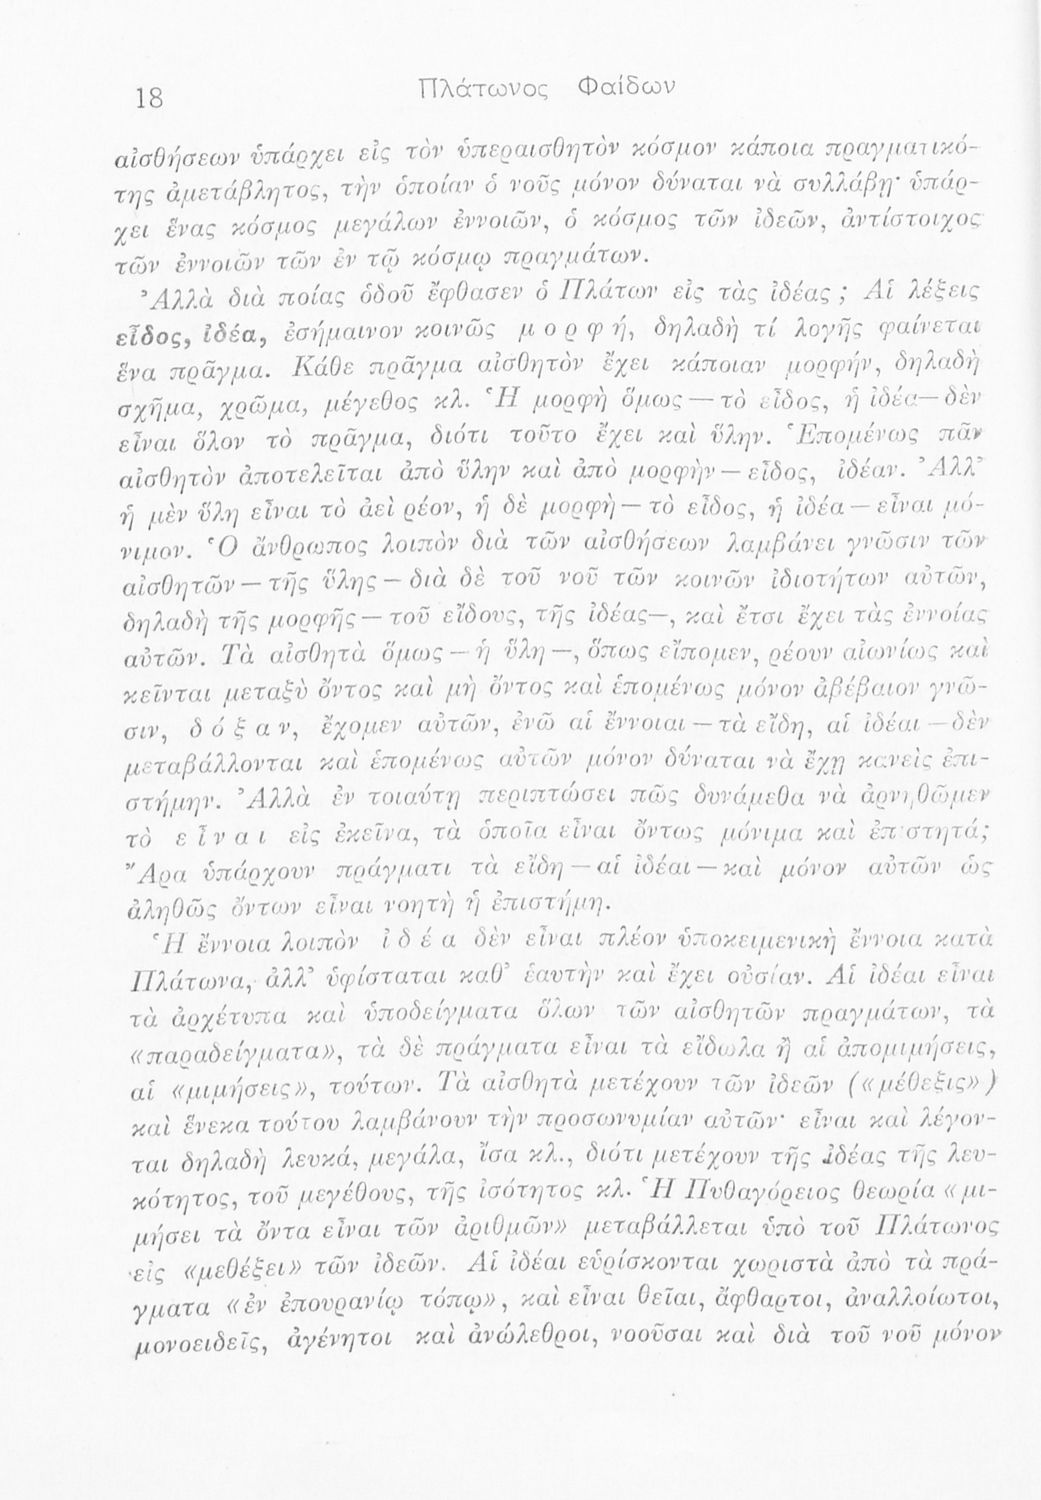 18
Πλάτωνος Φαίδων
αἰσθήσεων ὑπάρχει εἰς τὸν ὑπεραισθητὸν κόσμον κάποια πραγματικό-
της ἀμετάβλητος, τὴν ὁποίαν ὁ νοῦς μόνον δύναται νὰ συλλάβῃ· ὑπάρ-
χει ἕνας κόσμος μεγάλων ἐννοιῶν, ὁ κόσμος τῶν ἰδεῶν, ἀντίστοιχος
τῶν ἐννοιῶν τῶν ἐν τῷ κόσμῳ πραγμάτων.
Ἀλλὰ διὰ ποίας ὁδοῦ ἔφθασεν ὁ Πλάτων εἰς τὰς ἰδέας ; Αἱ λέξεις
εἶδος, ἰδέα, ἐσήμαινον κοινῶς μ ο ρ φ ή, δηλαδὴ τί λογῆς φαίνεται
ἕνα πρᾶγμα. Κάθε πρᾶγμα αἰσθητὸν ἔχει κάποιαν μορφήν, δηλαδὴ
σχῆμα, χρῶμα, μέγεθος κλ. Ἡ μορφὴ ὅμως — τὸ εἶδος, ἡ ἰδέα— δὲν
εἶναι ὅλον τὸ πρᾶγμα, διότι τοῦτο ἔχει καὶ ὕλην. Ἑπομένως πᾶν
αἰσθητὸν ἀποτελεῖται ἀπὸ ὕλην καὶ ἀπὸ μορφὴν — εἶδος, ἰδέαν. Ἀλλ᾽
ἡ μὲν ὕλη εἶναι τὸ ἀεὶ ρέον, ἡ δὲ μορφὴ — τὸ εἶδος, ἡ ἰδέα — εἶναι μό-
νιμον. Ὁ ἄνθρωπος λοιπὸν διὰ τῶν αἰσθήσεων λαμβάνει γνῶσιν τῶν
αἰσθητῶν — τῆς ὕλης — διὰ δὲ τοῦ νοῦ τῶν κοινῶν ἰδιοτήτων αὐτῶν,
δηλαδὴ τῆς μορφῆς — τοῦ εἴδους, τῆς ἰδέας—, καὶ ἔτσι ἔχει τὰς ἐννοίας
αὐτῶν. Τὰ αἰσθητὰ ὅμως — ἡ ὕλη —, ὅπως εἴπομεν, ρέουν αἰωνίως καὶ
κεῖνται μεταξὺ ὄντος καὶ μὴ ὄντος καὶ ἑπομένως μόνον ἀβέβαιον γνῶ-
σιν, δ ό ξ α ν, ἔχομεν αὐτῶν, ἐνῶ αἱ ἔννοιαι — τὰ εἴδη, αἱ ἰδέαι — δὲν
μεταβάλλονται καὶ ἑπομένως αὐτῶν μόνον δύναται νὰ ἔχῃ κανεὶς ἐπι-
στήμην. Ἀλλὰ ἐν τοιαύτῃ περιπτώσει πῶς δυνάμεθα νὰ ἀρνηθῶμεν
τὸ ε ἶ ν α ι εἰς ἐκεῖνα, τὰ ὁποῖα εἶναι ὄντως μόνιμα καὶ ἐπιστητά;
Ἄρα ὑπάρχουν πράγματι τὰ εἴδη — αἱ ἰδέαι — καὶ μόνον αὐτῶν ὡς
ἀληθῶς ὄντων εἶναι νοητὴ ἡ ἐπιστήμη.
Ἡ ἔννοια λοιπὸν ἰ δ έ α δὲν εἶναι πλέον ὑποκειμενικὴ ἔννοια κατὰ
Πλάτωνα, ἀλλ᾽ ὑφίσταται καθ᾽ ἑαυτὴν καὶ ἔχει οὐσίαν. Αἱ ἰδέαι εἶναι
τὰ ἀρχέτυπα καὶ ὑποδείγματα ὅλων τῶν αἰσθητῶν πραγμάτων, τὰ
«παραδείγματα», τὰ δὲ πράγματα εἶναι τὰ εἴδωλα ἢ αἱ ἀπομιμήσεις,
αἱ «μιμήσεις», τούτων. Τὰ αἰσθητὰ μετέχουν τῶν ἰδεῶν («μέθεξις»)
καὶ ἕνεκα τούτου λαμβάνουν τὴν προσωνυμίαν αὐτῶν· εἶναι καὶ λέγον-
ται δηλαδὴ λευκά, μεγάλα, ἴσα κλ., διότι μετέχουν τῆς ἰδέας τῆς λευ-
κότητος, τοῦ μεγέθους, τῆς ἰσότητος κλ. Ἡ Πυθαγόρειος θεωρία «μι-
μήσει τὰ ὄντα εἶναι τῶν ἀριθμῶν» μεταβάλλεται ὑπὸ τοῦ Πλάτωνος
εἰς «μεθέξει» τῶν ἰδεῶν. Αἱ ἰδέαι εὑρίσκονται χωριστὰ ἀπὸ τὰ πρά-
γματα «ἐν ἐπουρανίῳ τόπῳ», καὶ εἶναι θεῖαι, ἄφθαρτοι, ἀναλλοίωτοι,
μονοειδεῖς, ἀγένητοι καὶ ἀνώλεθροι, νοοῦσαι καὶ διὰ τοῦ νοῦ μόνον